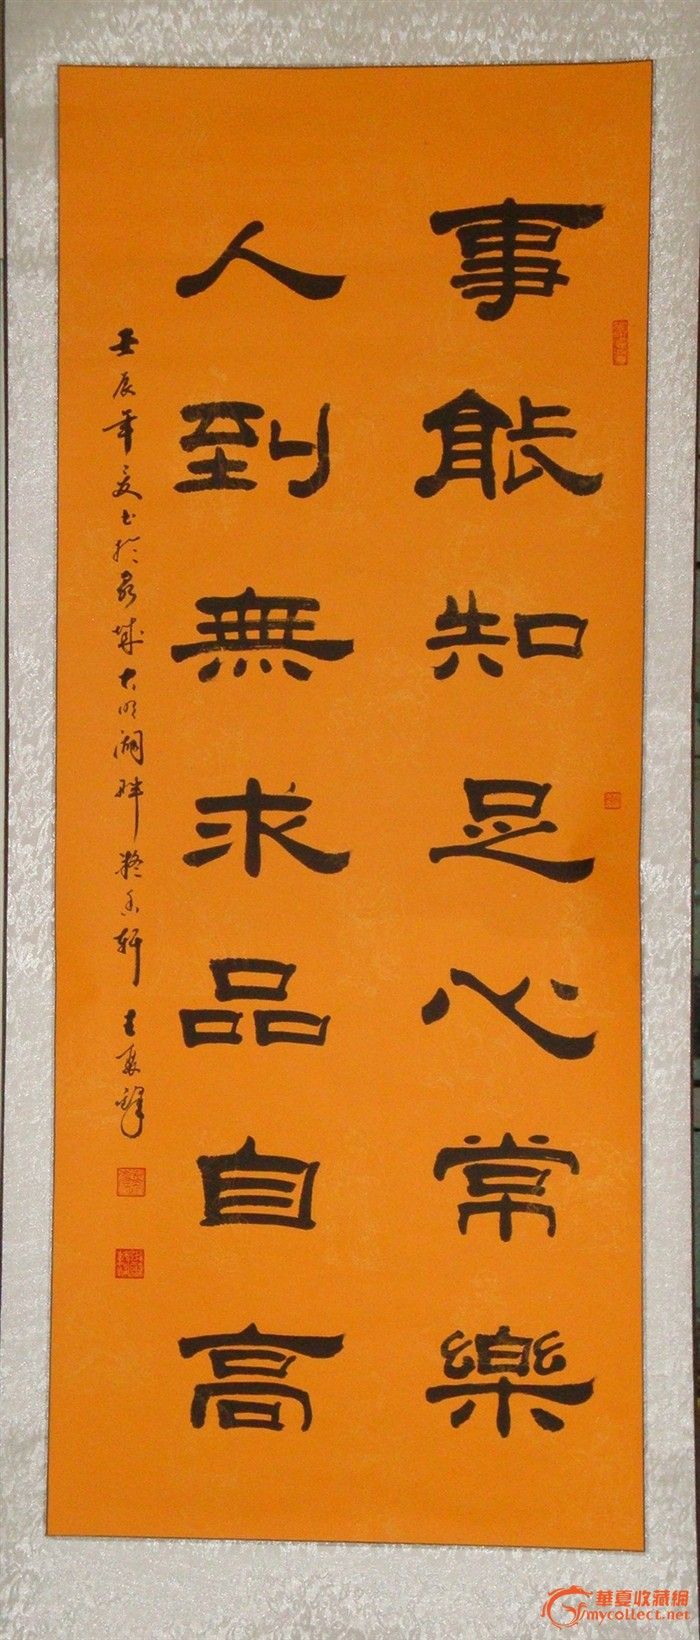 事能知足心常樂
人到無求品自高
壬辰年夏書於泉城大明湖畔
華夏收藏網
mycollect.net